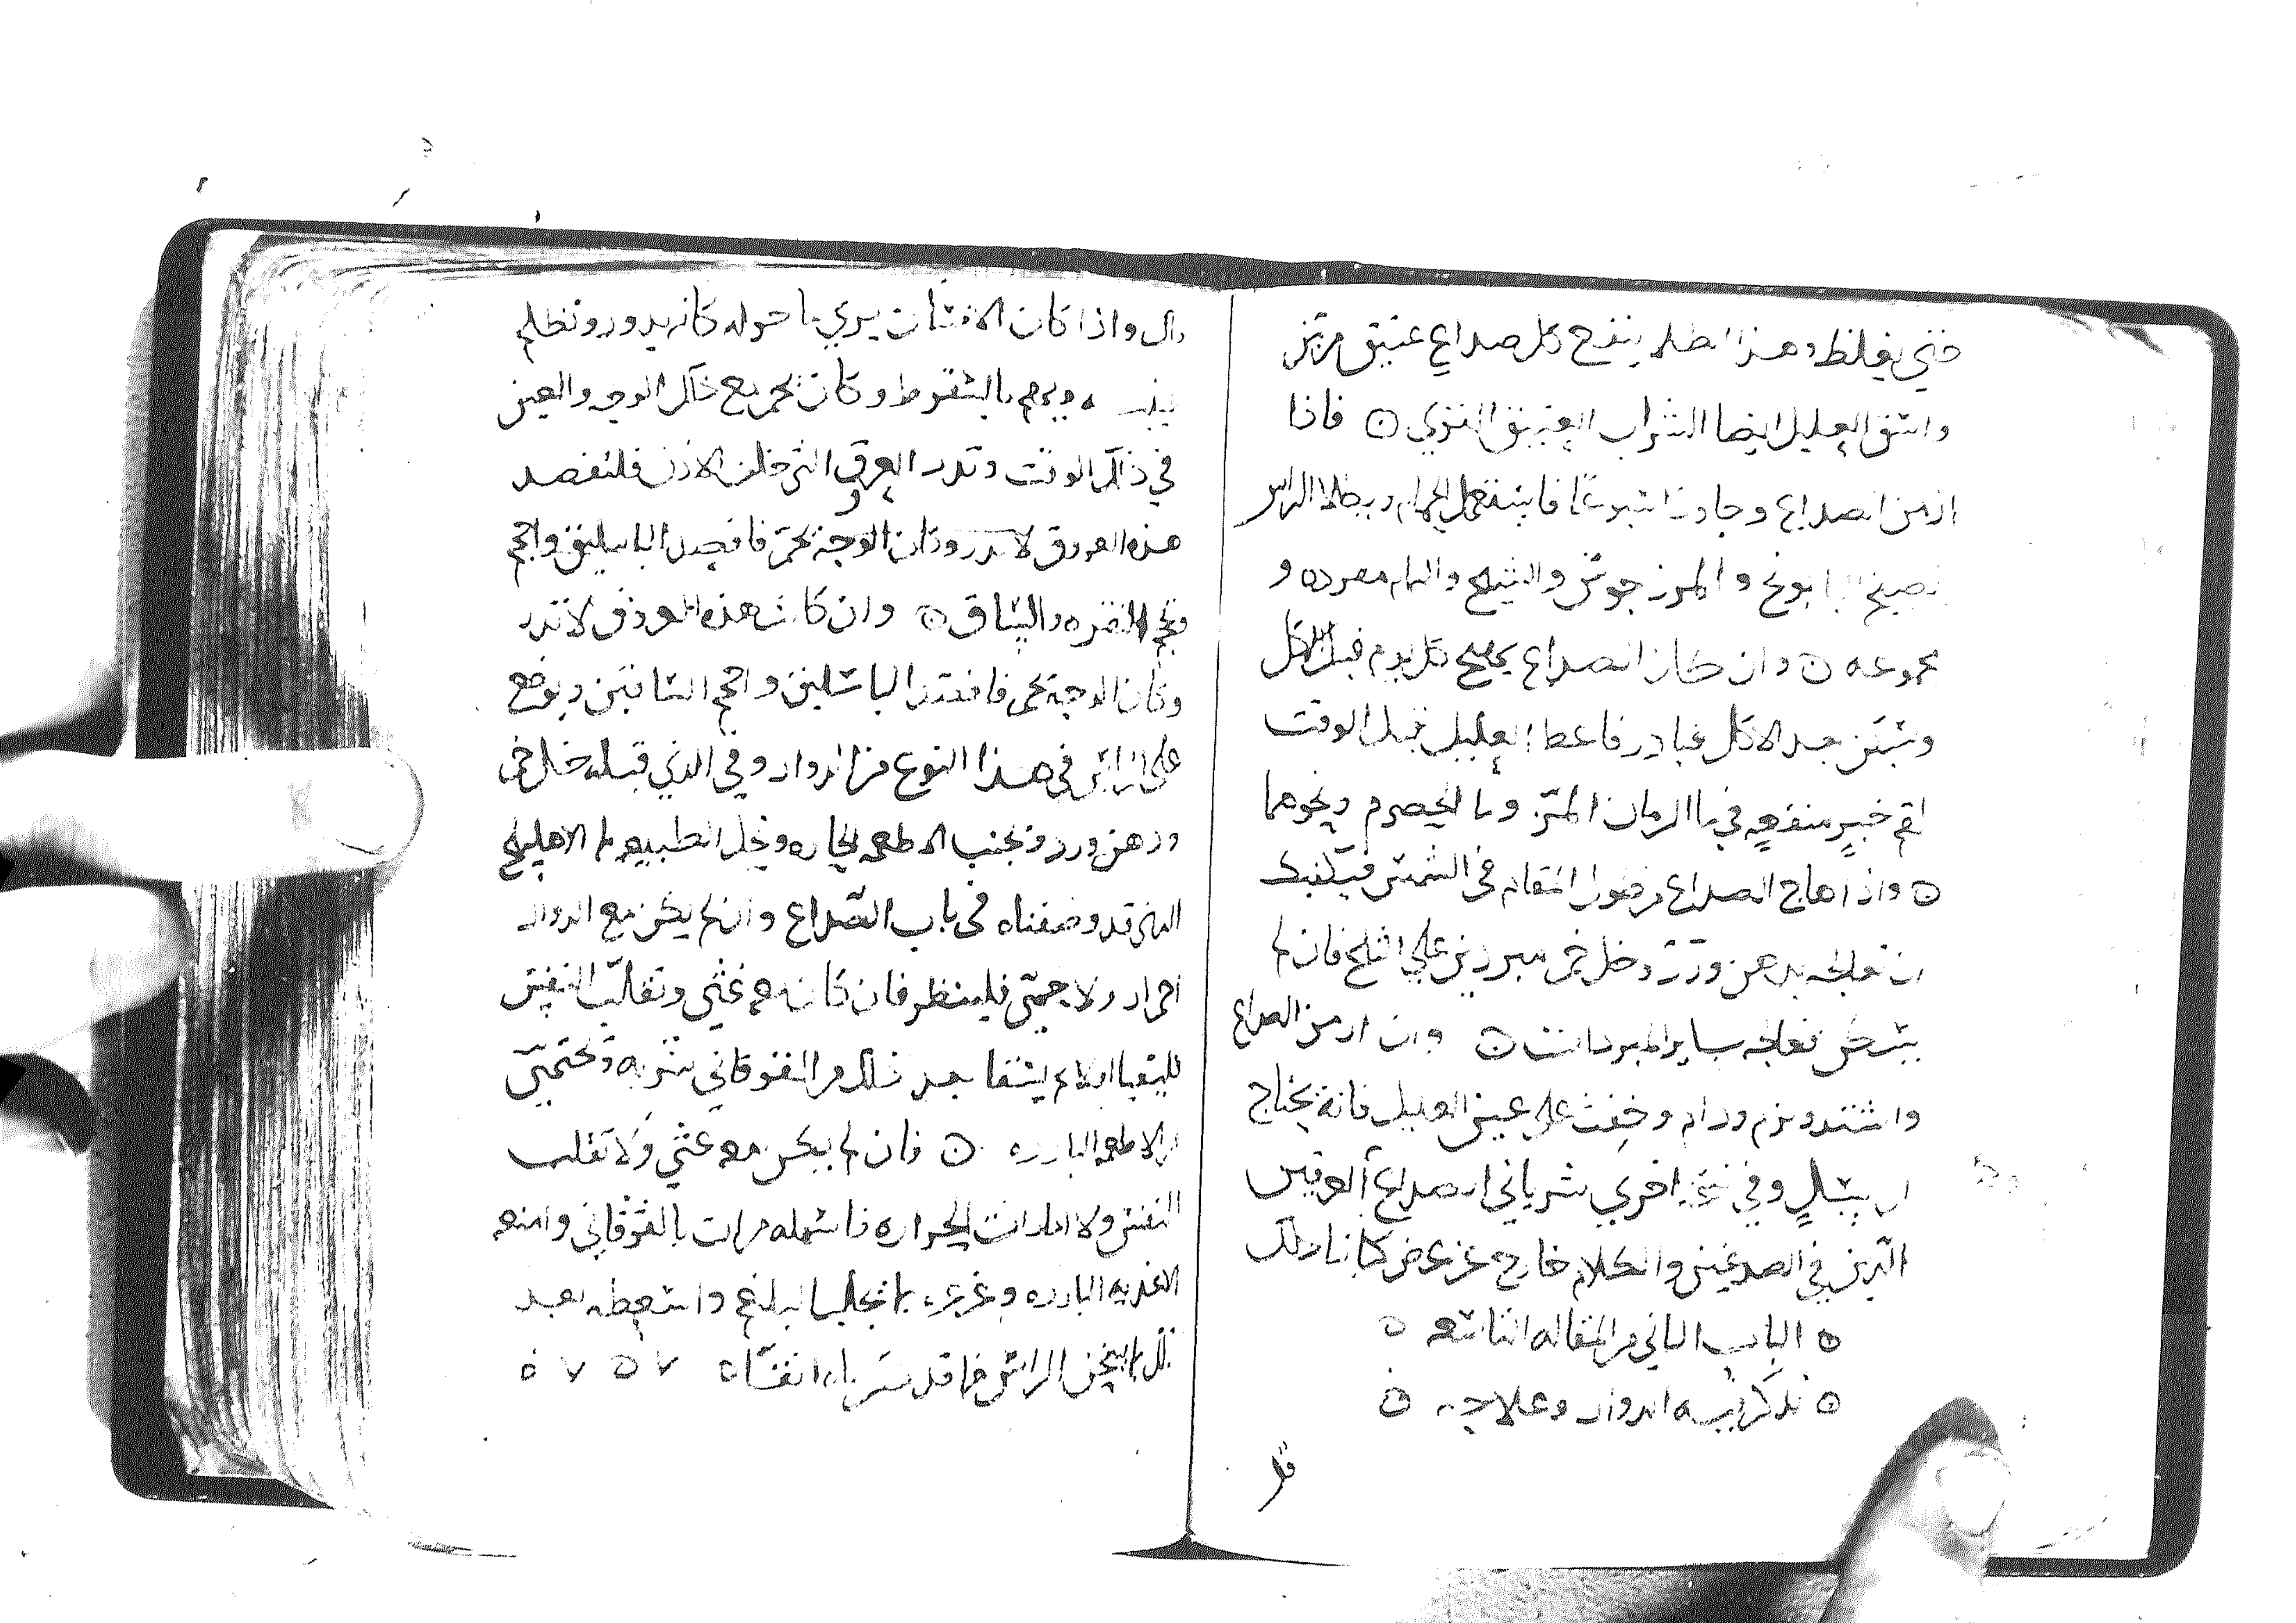 حتي يغلظ وهذا الطلا ينفع كل صداع عتيق مزمن
واسق العليل ايضا الشراب العتيق القوي ه فاذا
ازمن الصداع وجاوز اسبوعا فاستعمل الحمام ويطلا الراس
البابونج والمرزجوش والشيح والنمام مفرده و
مجموعه ه وان كان الصداع يهيج كل يوم قبل الاكل
ويسكن بعد الاكل فبادر فاعط العليل قبل الوقت
لقم خبز منقعه في ما الرمان المز وما الحصرم ونحوهما
ه واذا هاج الصداع من طول المقام في الشمس فيكفيك
ان تعالجه بدهن ورد وخل خمر مبردين علي الثلج فان لم
يسكن فعالجه بساير المبردات ه وان ازمن الصداع
واشتد ولزم ودام وخفت علي عين العليل فانه يحتاج
ان يسل وفي نسخه اخري شرياني اصداع العرقين
الذين في الصدغين والكلام خارج عن غرض كتابنا ذلك
ه الباب الثاني من المقاله التاسعه ه
ه نذكر فيه الدوار وعلاجه ه
قال
قال واذا كان الانسان يري ما حوله كانه يدور وتظلم
عينيه ويهم بالسقوط وكان يحمر مع ذلك الوجه والعين
في ذلك الوقت وتدر العرق التي خلف الاذن فلتفصد
هذه العروق لا تدر وكان الوجه يحمر فافصد الباسليق واحجم
وتحجم النقره والساق ه وان كانت هذه العروق لا تدر
وكان الوجه يحمي فافصد الباسليق واحجم الساقين ويوضع
علي الراس في هذا النوع من الدوار وفي الذي قبله خل خمر
ودهن ورد وتجنب الاطعمه الحاره وتحل الطبيعه بما الاهليلج
الذي قد وصفناه في باب الصداع وان لم يكن مع الدوار
احمرار ولا حمي فلينظر فان كان معه غثي وتقلب النفس
فليتقيا اولا ثم يسقا بعد ذلك من القوقاني شربه وتحتمي
من الاطعمه البارده ه فان لم يكن معه غثي ولا تقلب
النفس ولا امارات الحراره فاسهله مرات بالقوقاني وامنعه
الاغذيه البارده وغرغره بما يجلب البلغم واسعطه بعد
ذلك بما يسخن الراس مما قد انفا ه